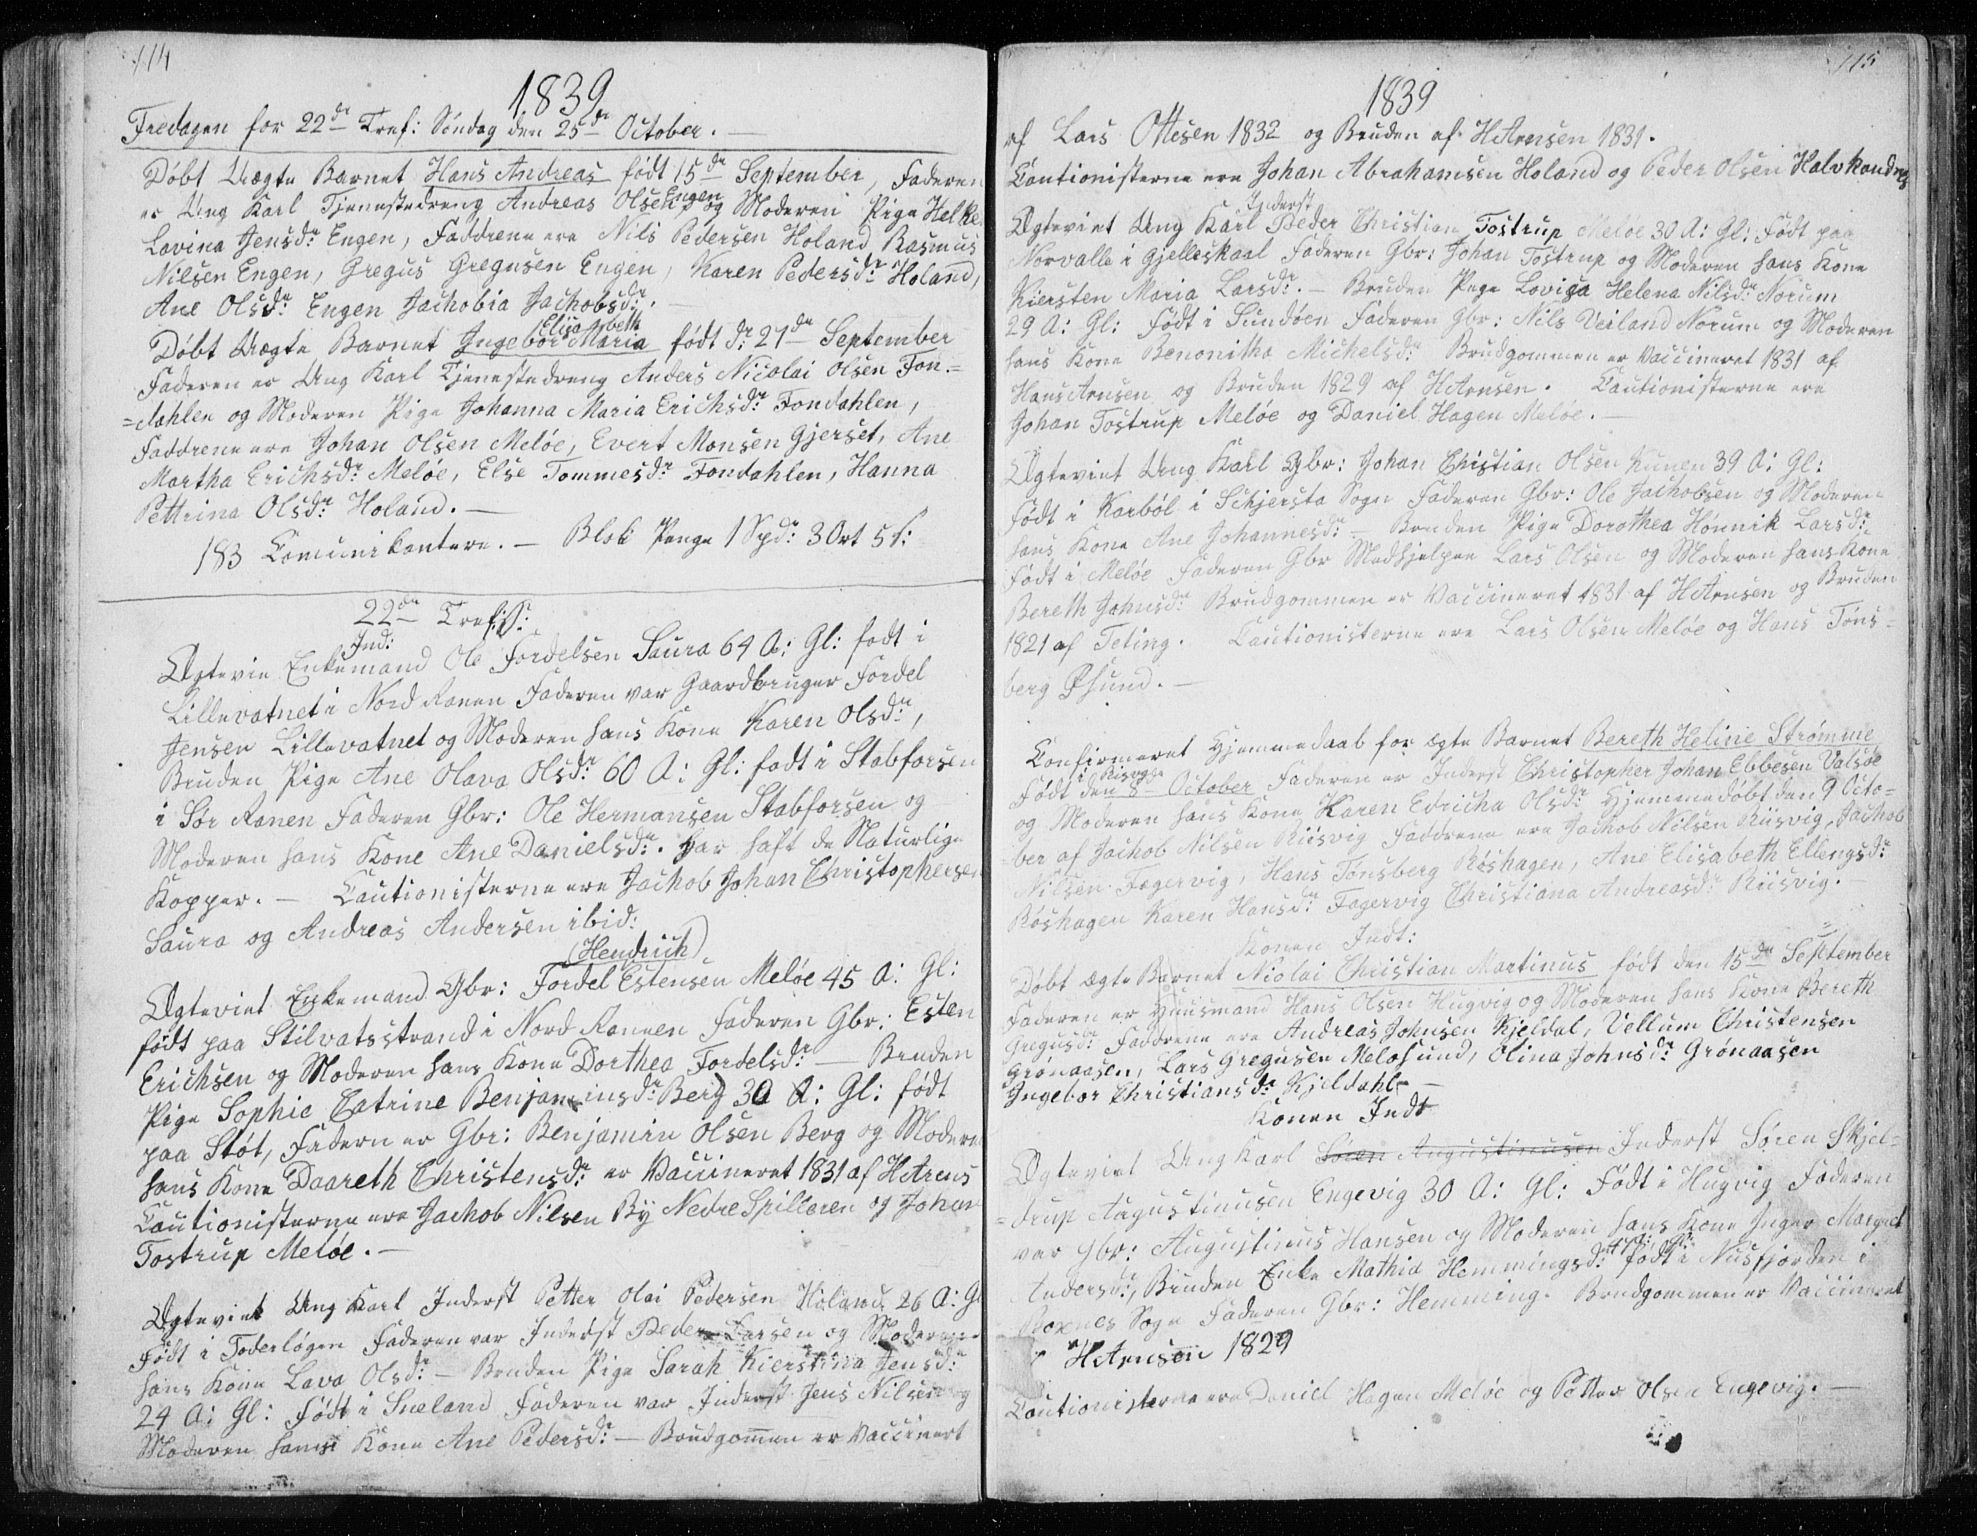 114
1839
Fredagen for 22de Tref: Søndag den 25de October. —
Døbt Uægte Barnet Hans Andreas født 15de September, Faderen
er Ung Karl Tjenestedreng Andreas Olsen Engen og Moderen Pige Helke
Lovina Jensdr: Engen, Faddrene ere Nils Pedersen Holand, Rasmus
Nilsen Engen, Gregus Gregusen Engen, Karen Pedersdr: Holand,
Ane Olsdr: Engen Jachobia Jachobsdr. —
Elisabeth
Døbt Uægte Barnet Ingebor Maria født d: 21de September
Faderen er Ung Karl Tjenestedreng Anders Nicolai Olsen Fon-
=dahlen og Moderen Pige Johanna Maria Erichsdr: Fondahlen,
Faddrene ere Johan Olsen Meløe, Evert Monsen Gjerset, Ane
Martha Erichsdr: Meløe, Else Tommesdr: Fondahlen, Hanna
Pettrina Olsdr: Holand. —
183 Comunikantere. — Blok Penge 1 Spd: 3 Ort 5 s:
22de Trefs:
Ind:
Ægtevie Enkemand Ole Fordelsen Saura 64 A: Gl: født i
Lillevatnet i Nord Ranen Faderen var Gaardbruger Fordel
Jensen Lillevatnet og Moderen hans Kone Karen Olsdr,
Bruden Pige Ane Olava Olsdr: 60 A: Gl: født i Stabforsen
i Sør Ranen Faderen Gbr: Ole Hermansen Stabforsen og
Moderen hans Kone Ane Danielsdr. Har haft de Naturlige
Kopper. — Cautionisterne ere Jachob Johan Christophersen
Saura og Andreas Andersen ibid:
(Hendrich)
Ægteviet Enkemand Gbr: Fordel Estensen Meløe 45 A: Gl:
født paa Stilvatsstrand i Nord Ranen Faderen Gbr: Esten
Erichsen og Moderen hans Kone Dorthea Fordelsdr: — Bruden
Pige Sophie Catrine Benjaminsdr: Berg 30 A: Gl: født
paa Støt, Fadern er Gbr: Benjamin Olsen Berg og Moderen
hans Kone Daareth Christensdr: er Vaccineret 1831 af H Arens
Cautionisterne ere Jachob Nilsen By Nedre Spilleren og Johan
Tostrup Meløe. —
Ægteviet Ung Karl Inderst Petter Olai Pedersen Holand 26 A: Gl
Født i Foderløgen Faderen var Inderst Peder Larsen og Moderen
hans Kone Lava Olsdr: — Bruden Pige Sarah Kierstina Jensdr:
24 A: Gl: Født i Sneland Faderen var Inderst Jens Nilsen og
Moderen hans Kone Ane Pedersdr: — Brudgomen er Vaccinert
115
1839
af Lars Ottesen 1832 og Bruden af H Arensen 1831.
Cautionisterne ere Johan Abrahamsen Holand og Peder Olsen Halvkandnes
Inderst
Ægteviet Ung Karl Peder Christian Tostrup Meløe 30 A: Gl: Født paa
Norvalle i Gjelleskaal Faderen Gbr: Johan Tostrup og Moderen hans Kone
Kiersten Maria Larsdr. — Bruden Pige Lovisa Helena Nilsdr: Norum
29 A: Gl: Født i Sundøen Faderen Gbr: Nils Veiland Norum og Moderen
hans Kone Benonitha Michelsdr: Brudgommen er Vaccineret 1831 af
Hans Arnsen og Bruden 1829 af H Arnsen. Cautionisterne ere
Johan Tostrup Meløe og Daniel Hagen Meløe. —
Ægteviet Ung Karl Gbr: Johan Christian Olsen Kunen 39 A: Gl:
Født i Karbøl i Schjersta Sogn Faderen Gbr: Ole Jachobsen og Moderen
hans Kone Ane Johannesdr: Bruden Pige Dorothea Hønnik Larsdr:
Født i Meløe Faderen Gbr Medhjelper Lars Olsen og Moderen hans Kone
Bereth Johnsdr: Brudgommen er Vaccineret 1831 af H Arnsen og Bruden
1821 af Teting. Cautionisterne ere Lars Olsen Meløe og Hans Tøns-
berg Øsund. —
Confirmeret Hjemmedaab for ægte Barnet Bereth Heline Strømme
i Risvig
Født den 8de October Faderen er Inderst Christopher Johan Ebbesen Valsøe
og Moderen hans Kone Karen Edricha Olsdr: Hjemmedøbt den 9 Octo-
ber af Jachob Nilsen Riisvig Faddrene ere Jachob Nilsen Riisvig, Jachob
Nilsen Fagervig, Hans Tønsberg Røshagen, Ane Elisabeth Ellengsdr:
Røshagen Karen Hansdr: Fagervig Christiana Andreasdr: Riisvig. —
Konen Indt:
Døbt ægte Barnet Niolai Christian Martinus født den 15de September
Faderen er Huusmand Hans Olsen Hugvig og Moderen hans Kone Bereth
Gregusdr: Faddrene ere Andreas Johnsen Kjeldal, Vellum Christensen
Grønaasen, Lars Gregusen Meløsund, Olina Johnsdr: Grønaasen
Ingebor Christiansdr Kjeldahl —
Konen Indt
Ægteviet Ung Karl Søren Augustinusen Inderst Søren Skjel-
=drup Augustinusen Engevig 30 A: Gl: Født i Hugvig Faderen
var Gbr: Augustinus Hansen og Moderen hans Kone Inger Margret
Andersdr:, Bruden Enke Mathia Hemmingsdr: 47 A: Gl: født i Nusfjorden i
Sogn Faderen Gbr: Hemming. Brudgommen er Vaccineret
H Arnsen 1829
Cautionisterne ere Daniel Hagen Meløe og Petter Olsen Engevig. —